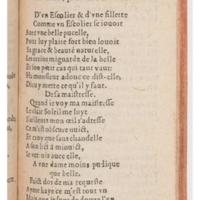 D'vn Escolier & d'vne fillette
Comme vn Escolier se iouoit
Auec vne belle pucelle,
Pour luy plaire fort bien louoit
Sa grace & beauté naturelle,
Les tetins mignards de la belle
Et son petit cas qui tant vaut:
Ha monsieur adonc ce dist-elle,
Dieu y mette ce qu'il y faut.
De sa maistresse.
Quand ie voy ma maistresse
Le clair Soleil me luyt
S'ailleurs mon œil s'adresse
Ce m'est obscure nuict,
Et croy que sans chandelle
A son lict à minuict,
Ie verrois auec elle.
A vne dame moins
que belle.
Fuict dos de ma requeste